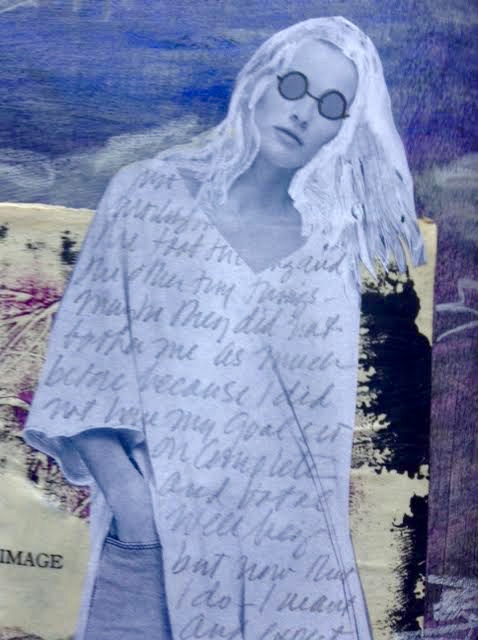 that the
the other tiny things -
maybe they did not
bother me as much
before because I did
not have my goal set
on complete
and total
well being -
but now that
I do - I want
and expect
IMAGE